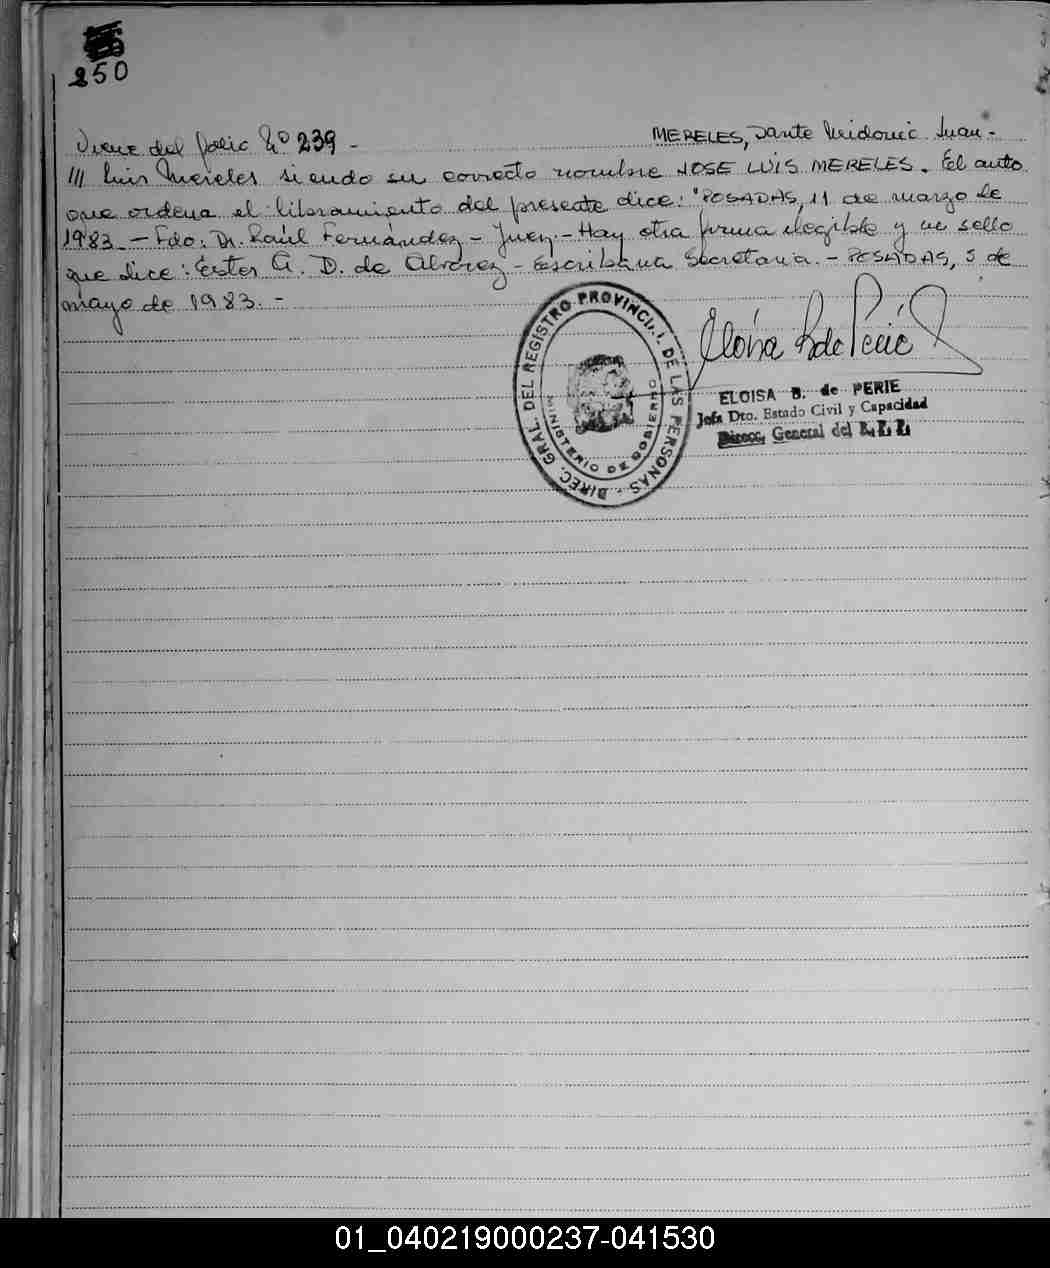 250
Viene del folio Nº 239 -
MERELES, Dante Juan.-
/// Luis Mereles siendo su correcto nombre JOSE LUIS MERELES. El auto
que ordena el libramiento del presente dice: "POSADAS, 11 de marzo de
1983.- Fdo. Dr. Raúl Fernández - Juez.- Hay otra firma ilegible y un sello
que dice: Ester A. D. de Alvarez - Escribana Secretaria.- POSADAS, 5 de
mayo de 1983.-
DIREC. GRAL. DEL REGISTRO PROVINCIAL DE LAS PERSONAS -
MINISTERIO DE GOBIERNO
ELOISA B. de PERIE
Jefa Dto. Estado Civil y Capacidad
Direcc. General del
01_040219000237-041530